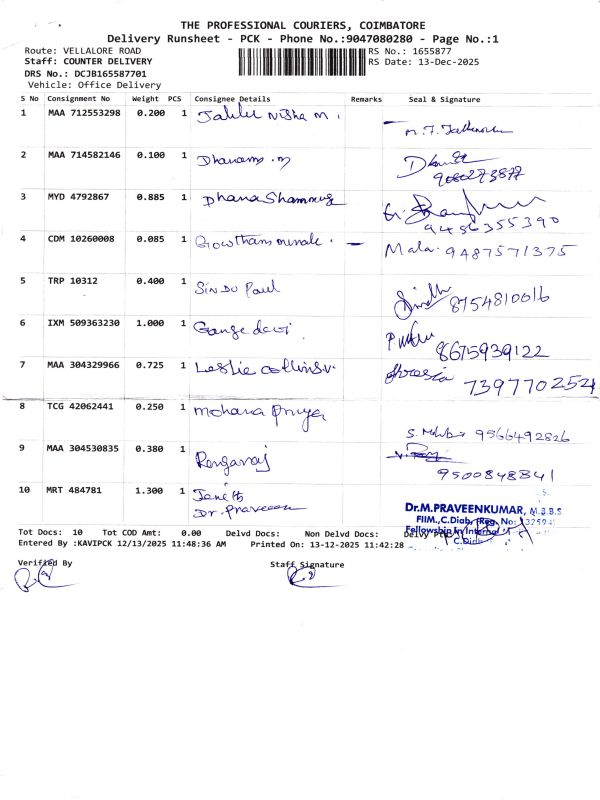 THE PROFESSIONAL COURIERS, COIMBATORE
Delivery Runsheet - PCK - Phone No.:9047080280 - Page No.:1
Route: VELLALORE ROAD RS No.: 1655877
Staff: COUNTER DELIVERY RS Date: 13-Dec-2025
DRS No.: DCJB165587701
Vehicle: Office Delivery
S No Consignment No Weight PCS Consignee Details Remarks Seal & Signature
1 MAA 712553298 0.200 1 Nisha M.
2 MAA 714582146 0.100 1
9080273877
3 MYD 4792867 0.885 1
9486355390
4 CDM 10260008 0.085 1 Mala. 9487571375
5 TRP 10312 0.400 1 Sindu Paul
8754810016
6 IXM 509363230 1.000 1 Ganga devi
8675939122
7 MAA 304329966 0.725 1 Leslie collins.v.
7397702524
8 TCG 42062441 0.250 1 Mohana Priya
9566492826
9 MAA 304530835 0.380 1 Rengaraj
9500848341
10 MRT 484781 1.300 1
Dr. Praveen
Dr.M.PRAVEENKUMAR, M.B.B.S
FIIM.,C.Diab., Reg. No:
Fellowship In Internal
C.Diab
Tot Docs: 10 Tot COD Amt: 0.00 Delvd Docs: Non Delvd Docs:
Entered By :KAVIPCK 12/13/2025 11:48:36 AM Printed On: 13-12-2025 11:42:28
Verified By Staff Signature